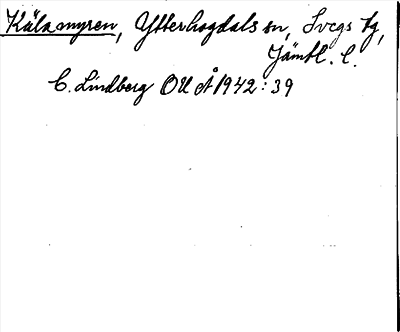 Källmyren, Ytterhogdals sn, Svegs tg,
Jämtl. l.
C. Lindberg OUÅ 1942:39